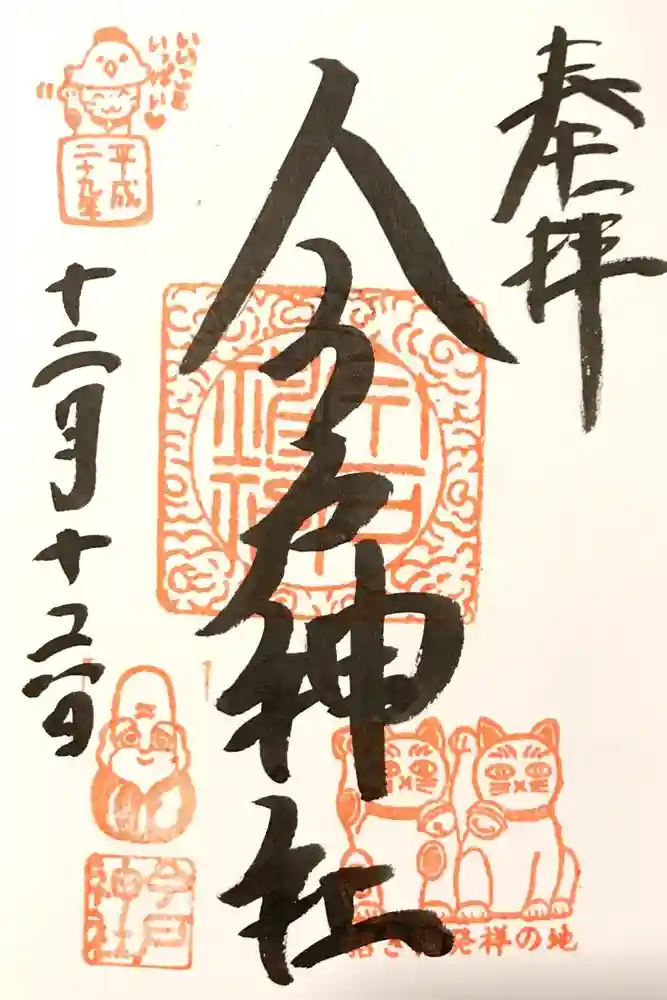 奉拝
今戸神社
いいこと
いっぱい♥
平成
二十九年
十二月十 日
今戸
神社
招き猫発祥の地